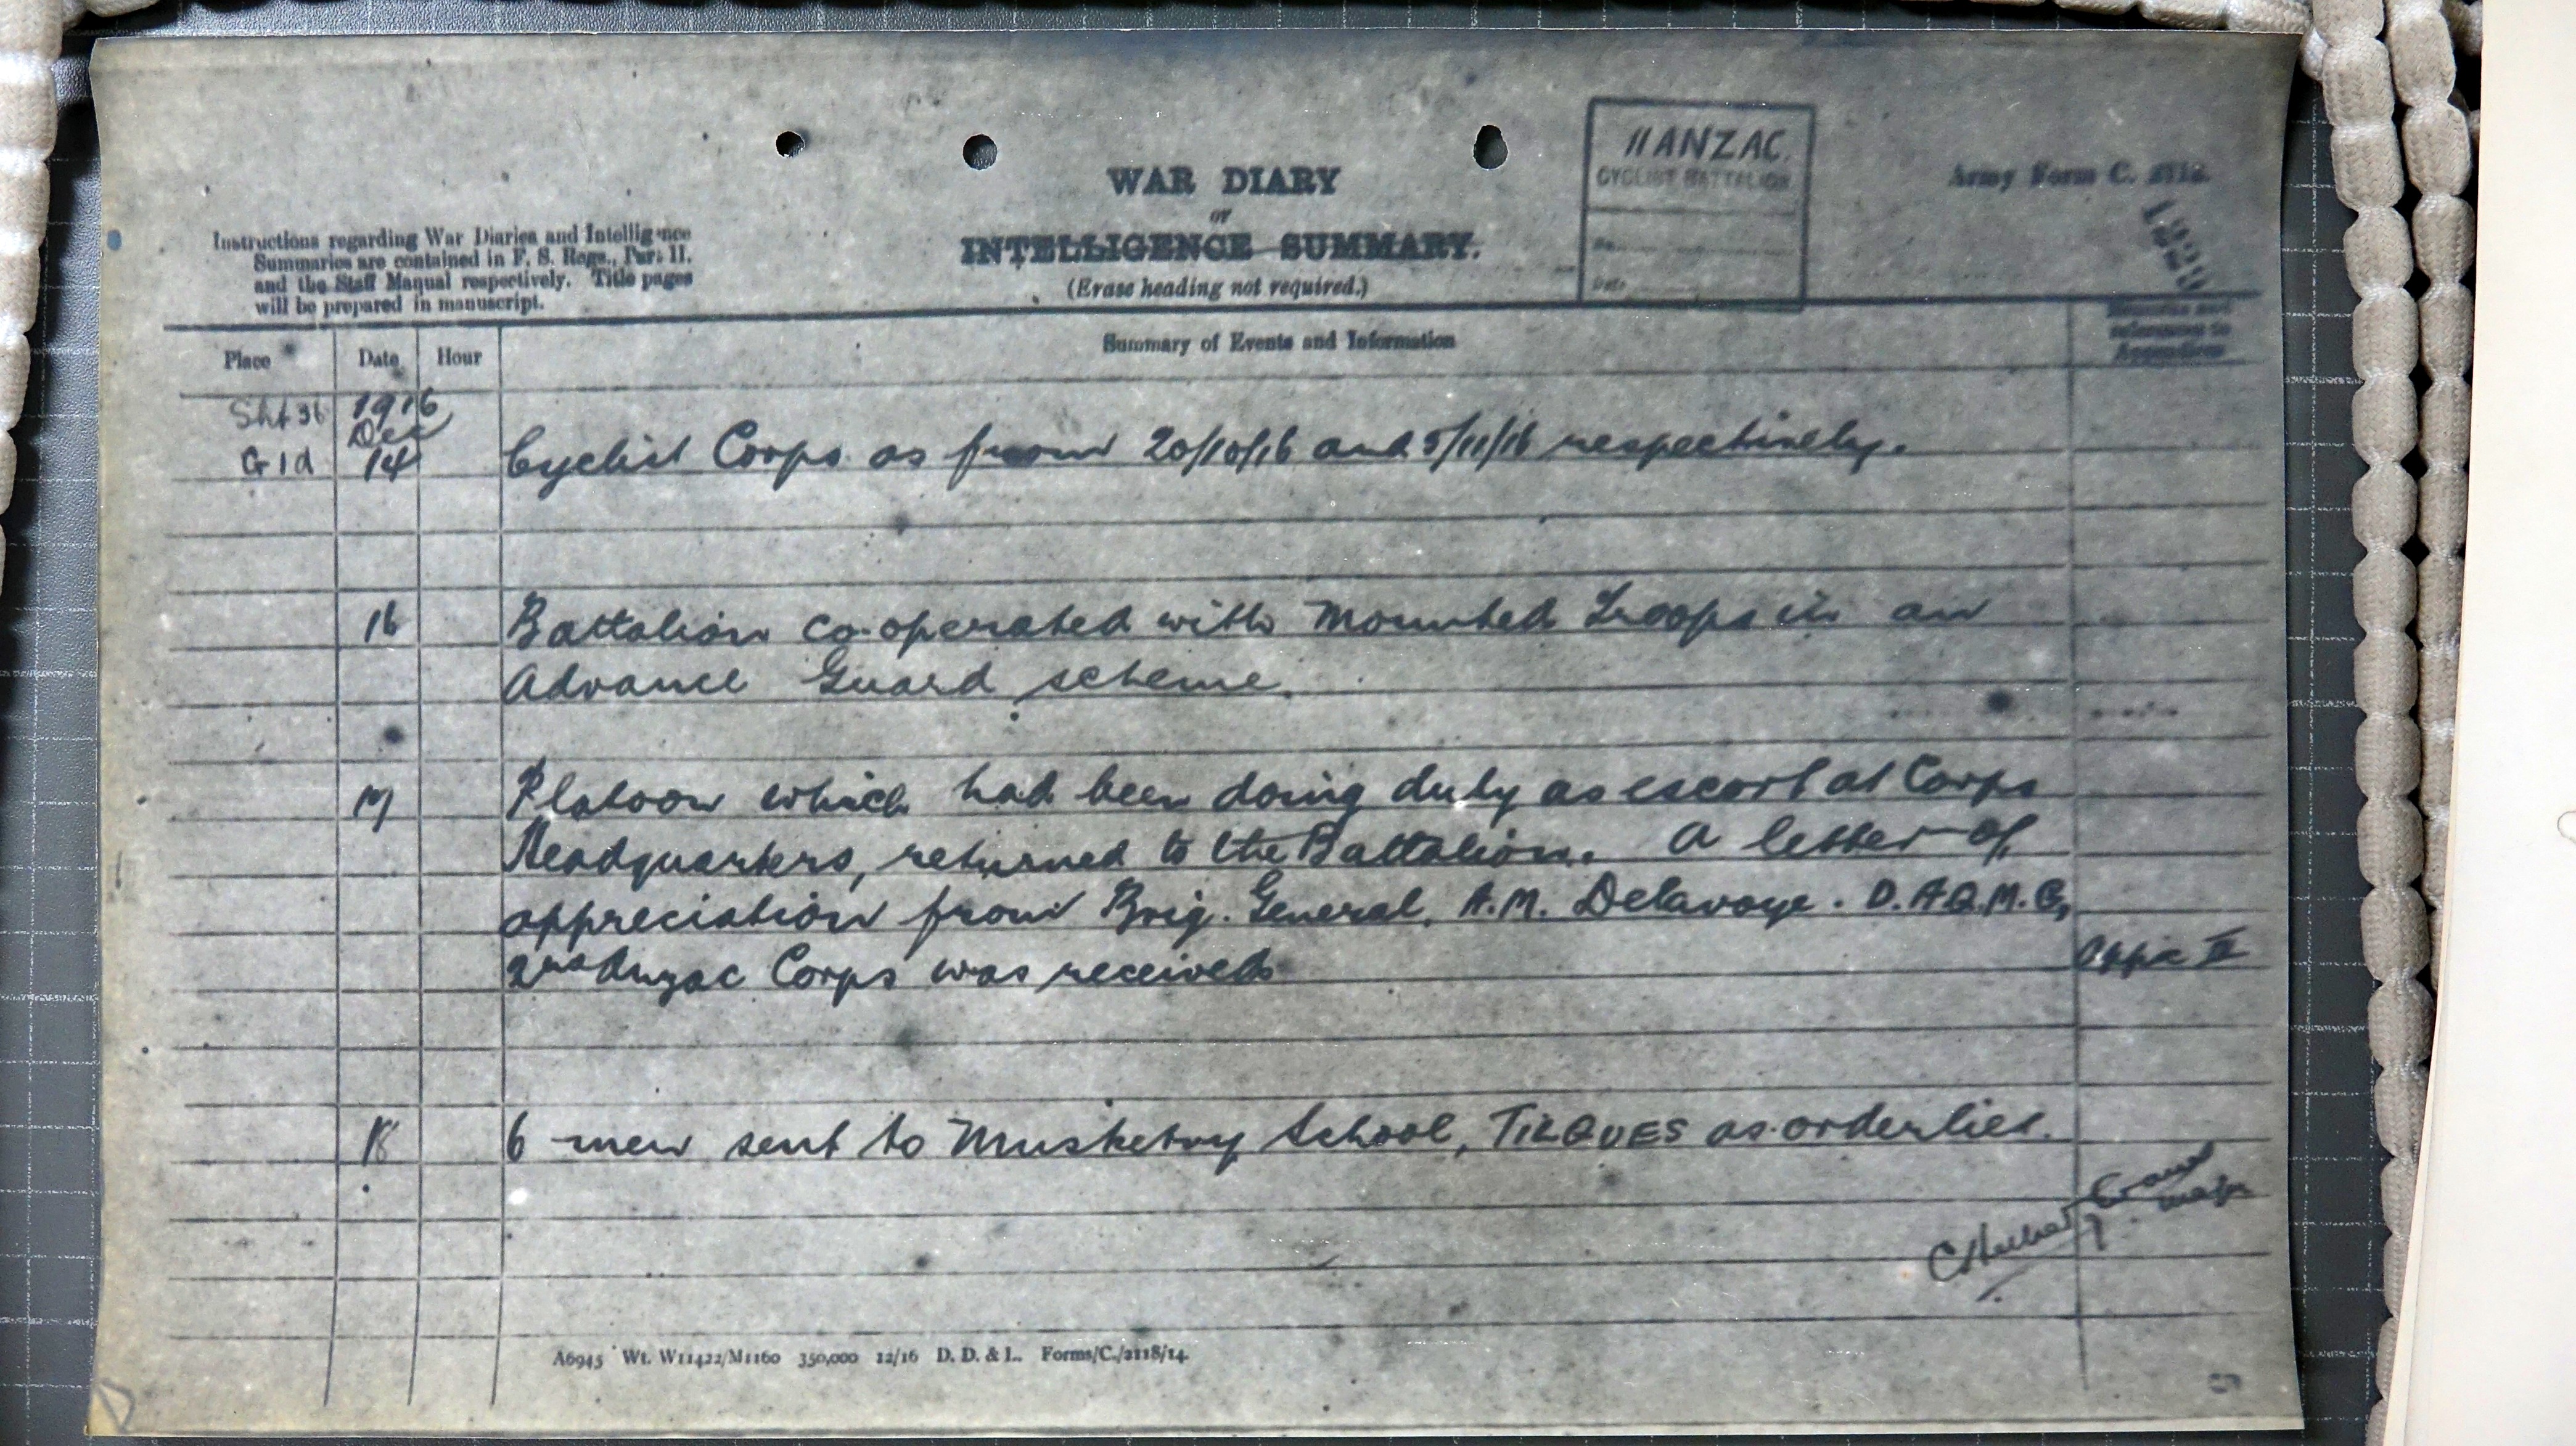 II ANZAC.
CYCLIST BATTALION
No.
Date
Army Form C. 2118.
WAR DIARY
or
INTELLIGENCE SUMMARY.
(Erase heading not required.)
Instructions regarding War Diaries and Intelligence
Summaries are contained in F. S. Regs., Part II.
and the Staff Manual respectively. Title pages
will be prepared in manuscript.
Place Date Hour Summary of Events and Information Remarks and
references to
Appendices
Sht 36 1916
Dec
G1d 14 Cyclist Corps as from 20/10/16 and 5/11/16 respectively.
16 Battalion co-operated with Mounted Troops in an
Advance Guard scheme.
17 Platoon which had been doing duty as escort at Corps
Headquarters, returned to the Battalion. A letter of
appreciation from Brig. General. A.M. Delavoye. D.A.Q.M.G,
2nd Anzac Corps was received Appx II
18 6 men sent to Musketry School, TILQUES as orderlies.
Evans
Major
A6945 Wt. W11422/M1160 350,000 12/16 D. D. & L. Forms/C./2118/14.